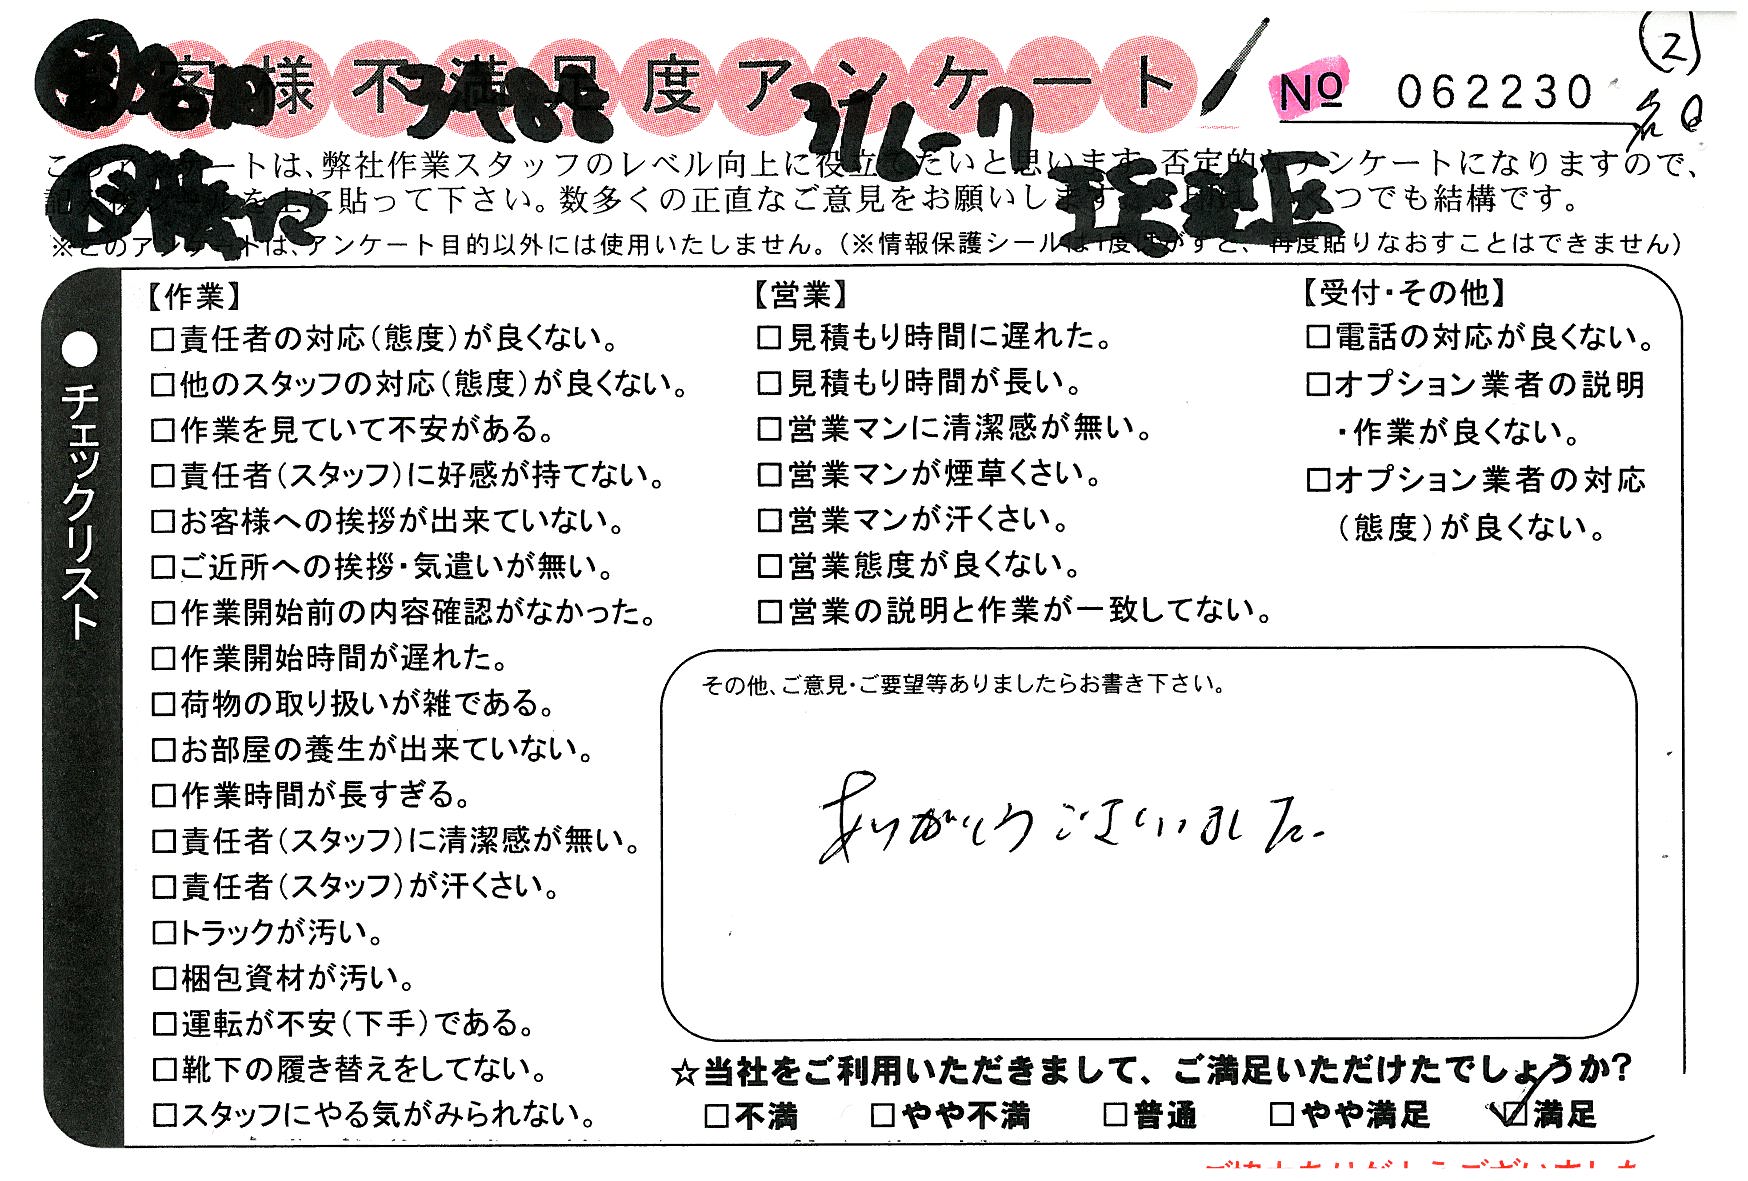 お客様不満足度アンケート
No 062230
②
このアンケートは、弊社作業スタッフのレベル向上に役立てたいと思います。否定的なアンケートになりますので、
を上に貼って下さい。数多くの正直なご意見をお願いします。 いくつでも結構です。
※このアンケートは、アンケート目的以外には使用いたしません。(※情報保護シールは1度はがすと、再度貼りなおすことはできません)
●チェックリスト
【作業】
□責任者の対応(態度)が良くない。
□他のスタッフの対応(態度)が良くない。
□作業を見ていて不安がある。
□責任者(スタッフ)に好感が持てない。
□お客様への挨拶が出来ていない。
□ご近所への挨拶・気遣いが無い。
□作業開始前の内容確認がなかった。
□作業開始時間が遅れた。
□荷物の取り扱いが雑である。
□お部屋の養生が出来ていない。
□作業時間が長すぎる。
□責任者(スタッフ)に清潔感が無い。
□責任者(スタッフ)が汗くさい。
□トラックが汚い。
□梱包資材が汚い。
□運転が不安(下手)である。
□靴下の履き替えをしてない。
□スタッフにやる気がみられない。
【営業】
□見積もり時間に遅れた。
□見積もり時間が長い。
□営業マンに清潔感が無い。
□営業マンが煙草くさい。
□営業マンが汗くさい。
□営業態度が良くない。
□営業の説明と作業が一致してない。
【受付・その他】
□電話の対応が良くない。
□オプション業者の説明
・作業が良くない。
□オプション業者の対応
(態度)が良くない。
その他、ご意見・ご要望等ありましたらお書き下さい。
ありがとうございました。
☆当社をご利用いただきまして、ご満足いただけたでしょうか?
□不満 □やや不満 □普通 □やや満足 ☑満足
ご協力ありがとうございました